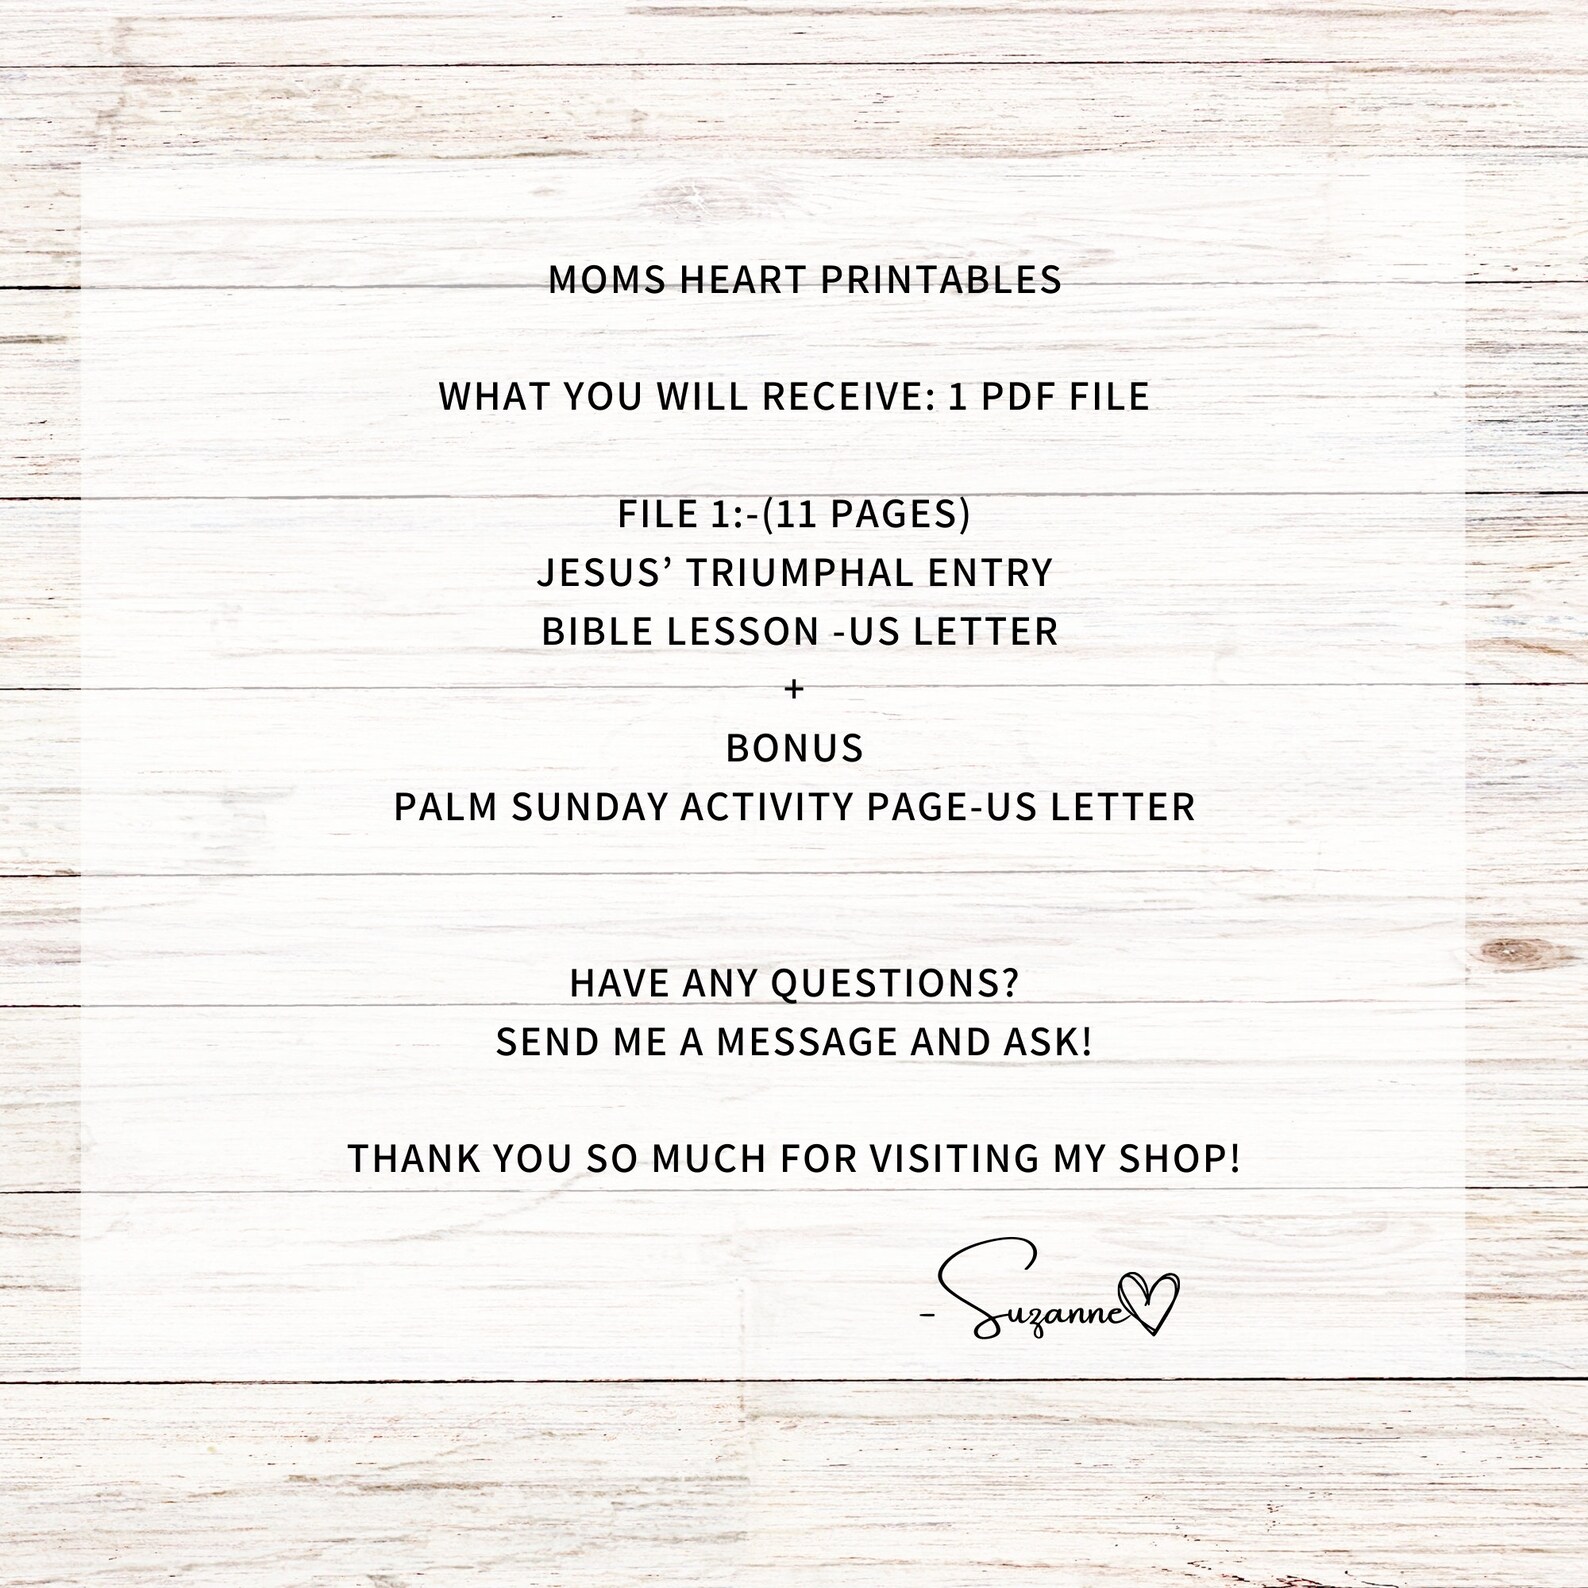 MOMS HEART PRINTABLES
WHAT YOU WILL RECEIVE: 1 PDF FILE
FILE 1:-(11 PAGES)
JESUS’ TRIUMPHAL ENTRY
BIBLE LESSON -US LETTER
+
BONUS
PALM SUNDAY ACTIVITY PAGE-US LETTER
HAVE ANY QUESTIONS?
SEND ME A MESSAGE AND ASK!
THANK YOU SO MUCH FOR VISITING MY SHOP!
-Suzanne